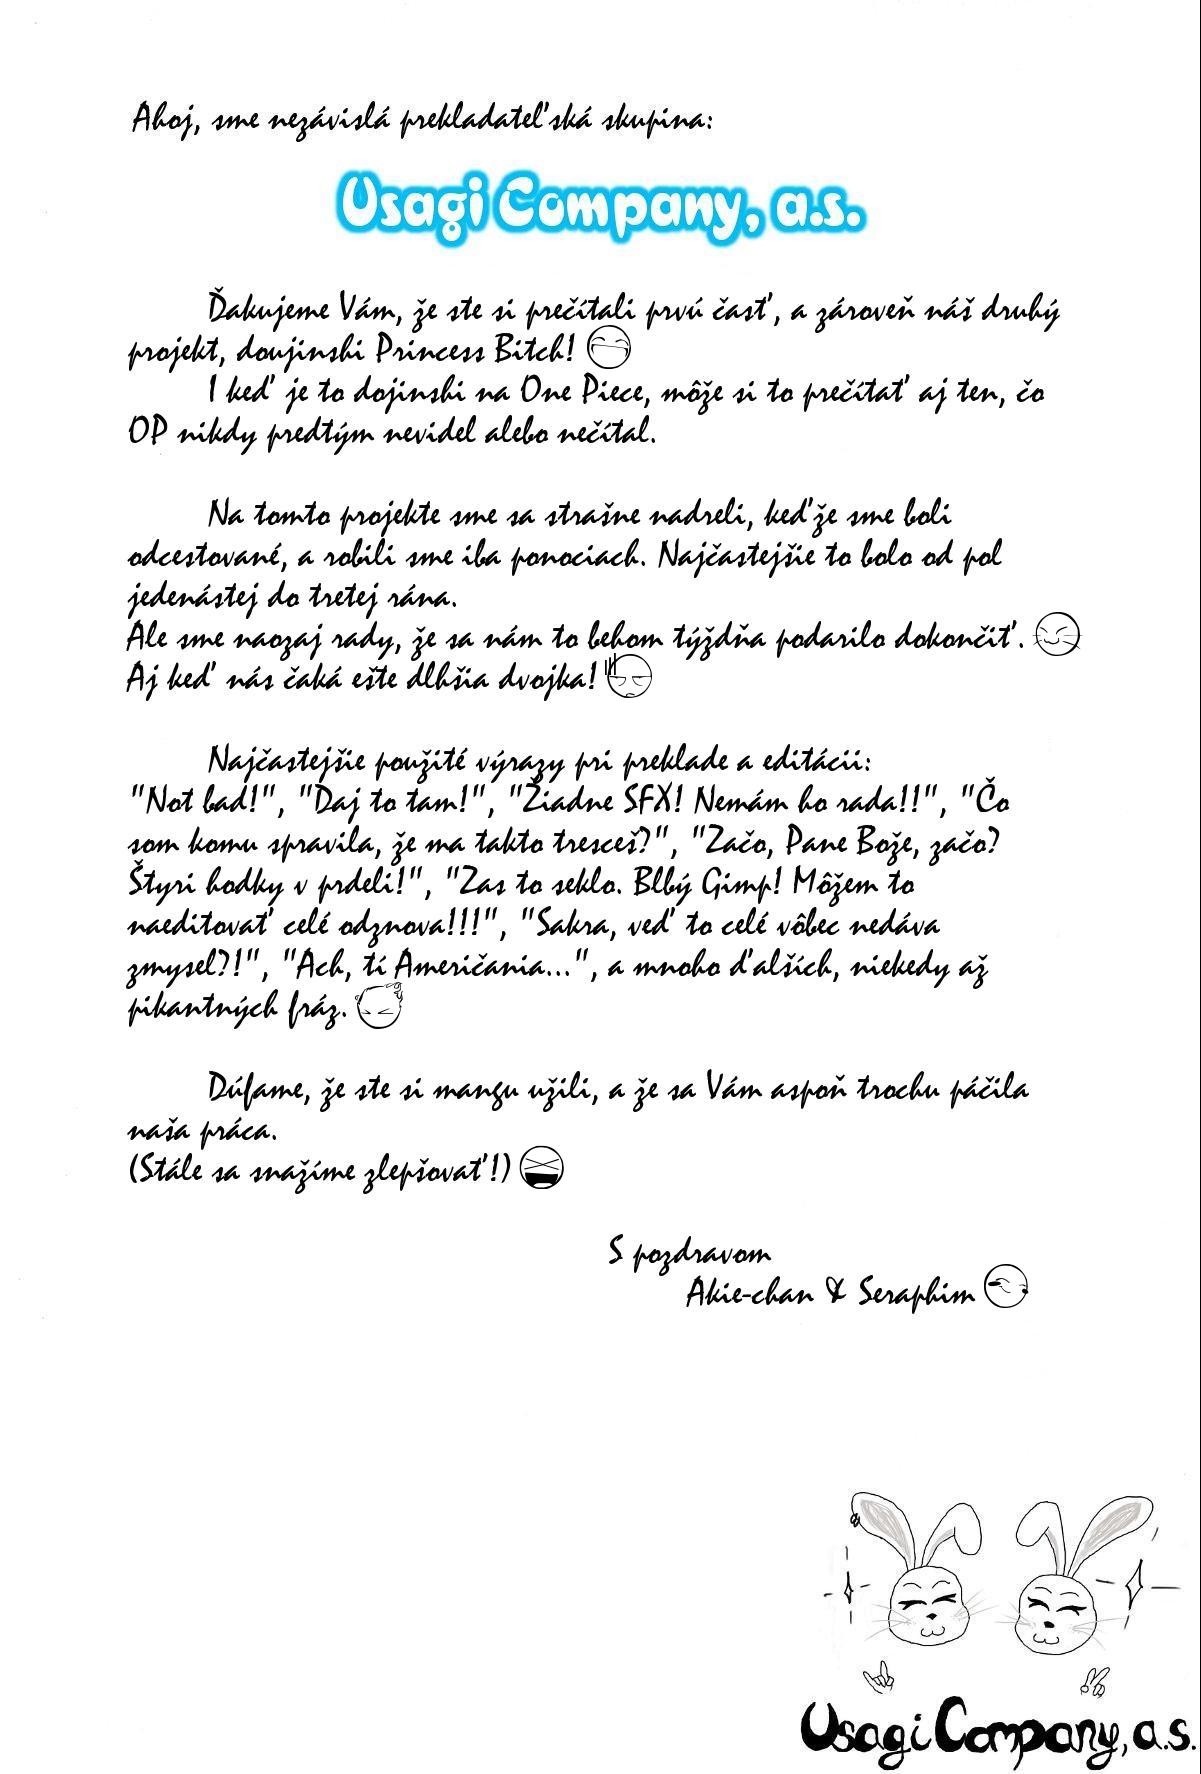 Ahoj, sme nezávislá prekladateľská skupina:
Usagi Company, a.s.
Ďakujeme Vám, že ste si prečítali prvú časť, a zároveň náš druhý
projekt, doujinshi Princess Bitch!
I keď je to dojinshi na One Piece, môže si to prečítať aj ten, čo
OP nikdy predtým nevidel alebo nečítal.
Na tomto projekte sme sa strašne nadreli, keďže sme boli
odcestované, a robili sme iba ponociach. Najčastejšie to bolo od pol
jedenástej do tretej rána.
Ale sme naozaj rady, že sa nám to behom týždňa podarilo dokončiť.
Aj keď nás čaká ešte dlhšia dvojka!
Najčastejšie použité výrazy pri preklade a editácii:
"Not bad!", "Daj to tam!", "Žiadne SFX! Nemám ho rada!!", "Čo
som komu spravila, že ma takto tresceš?", "Začo, Pane Bože, začo?
Štyri hodky v prdeli!", "Zas to seklo. Blbý Gimp! Môžem to
naeditovať celé odznova!!!", "Sakra, veď to celé vôbec nedáva
zmysel?!", "Ach, tí Američania...", a mnoho ďalších, niekedy až
pikantných fráz.
Dúfame, že ste si mangu užili, a že sa Vám aspoň trochu páčila
naša práca.
(Stále sa snažíme zlepšovať!)
S pozdravom
Akie-chan & Seraphim
Usagi Company, a.s.